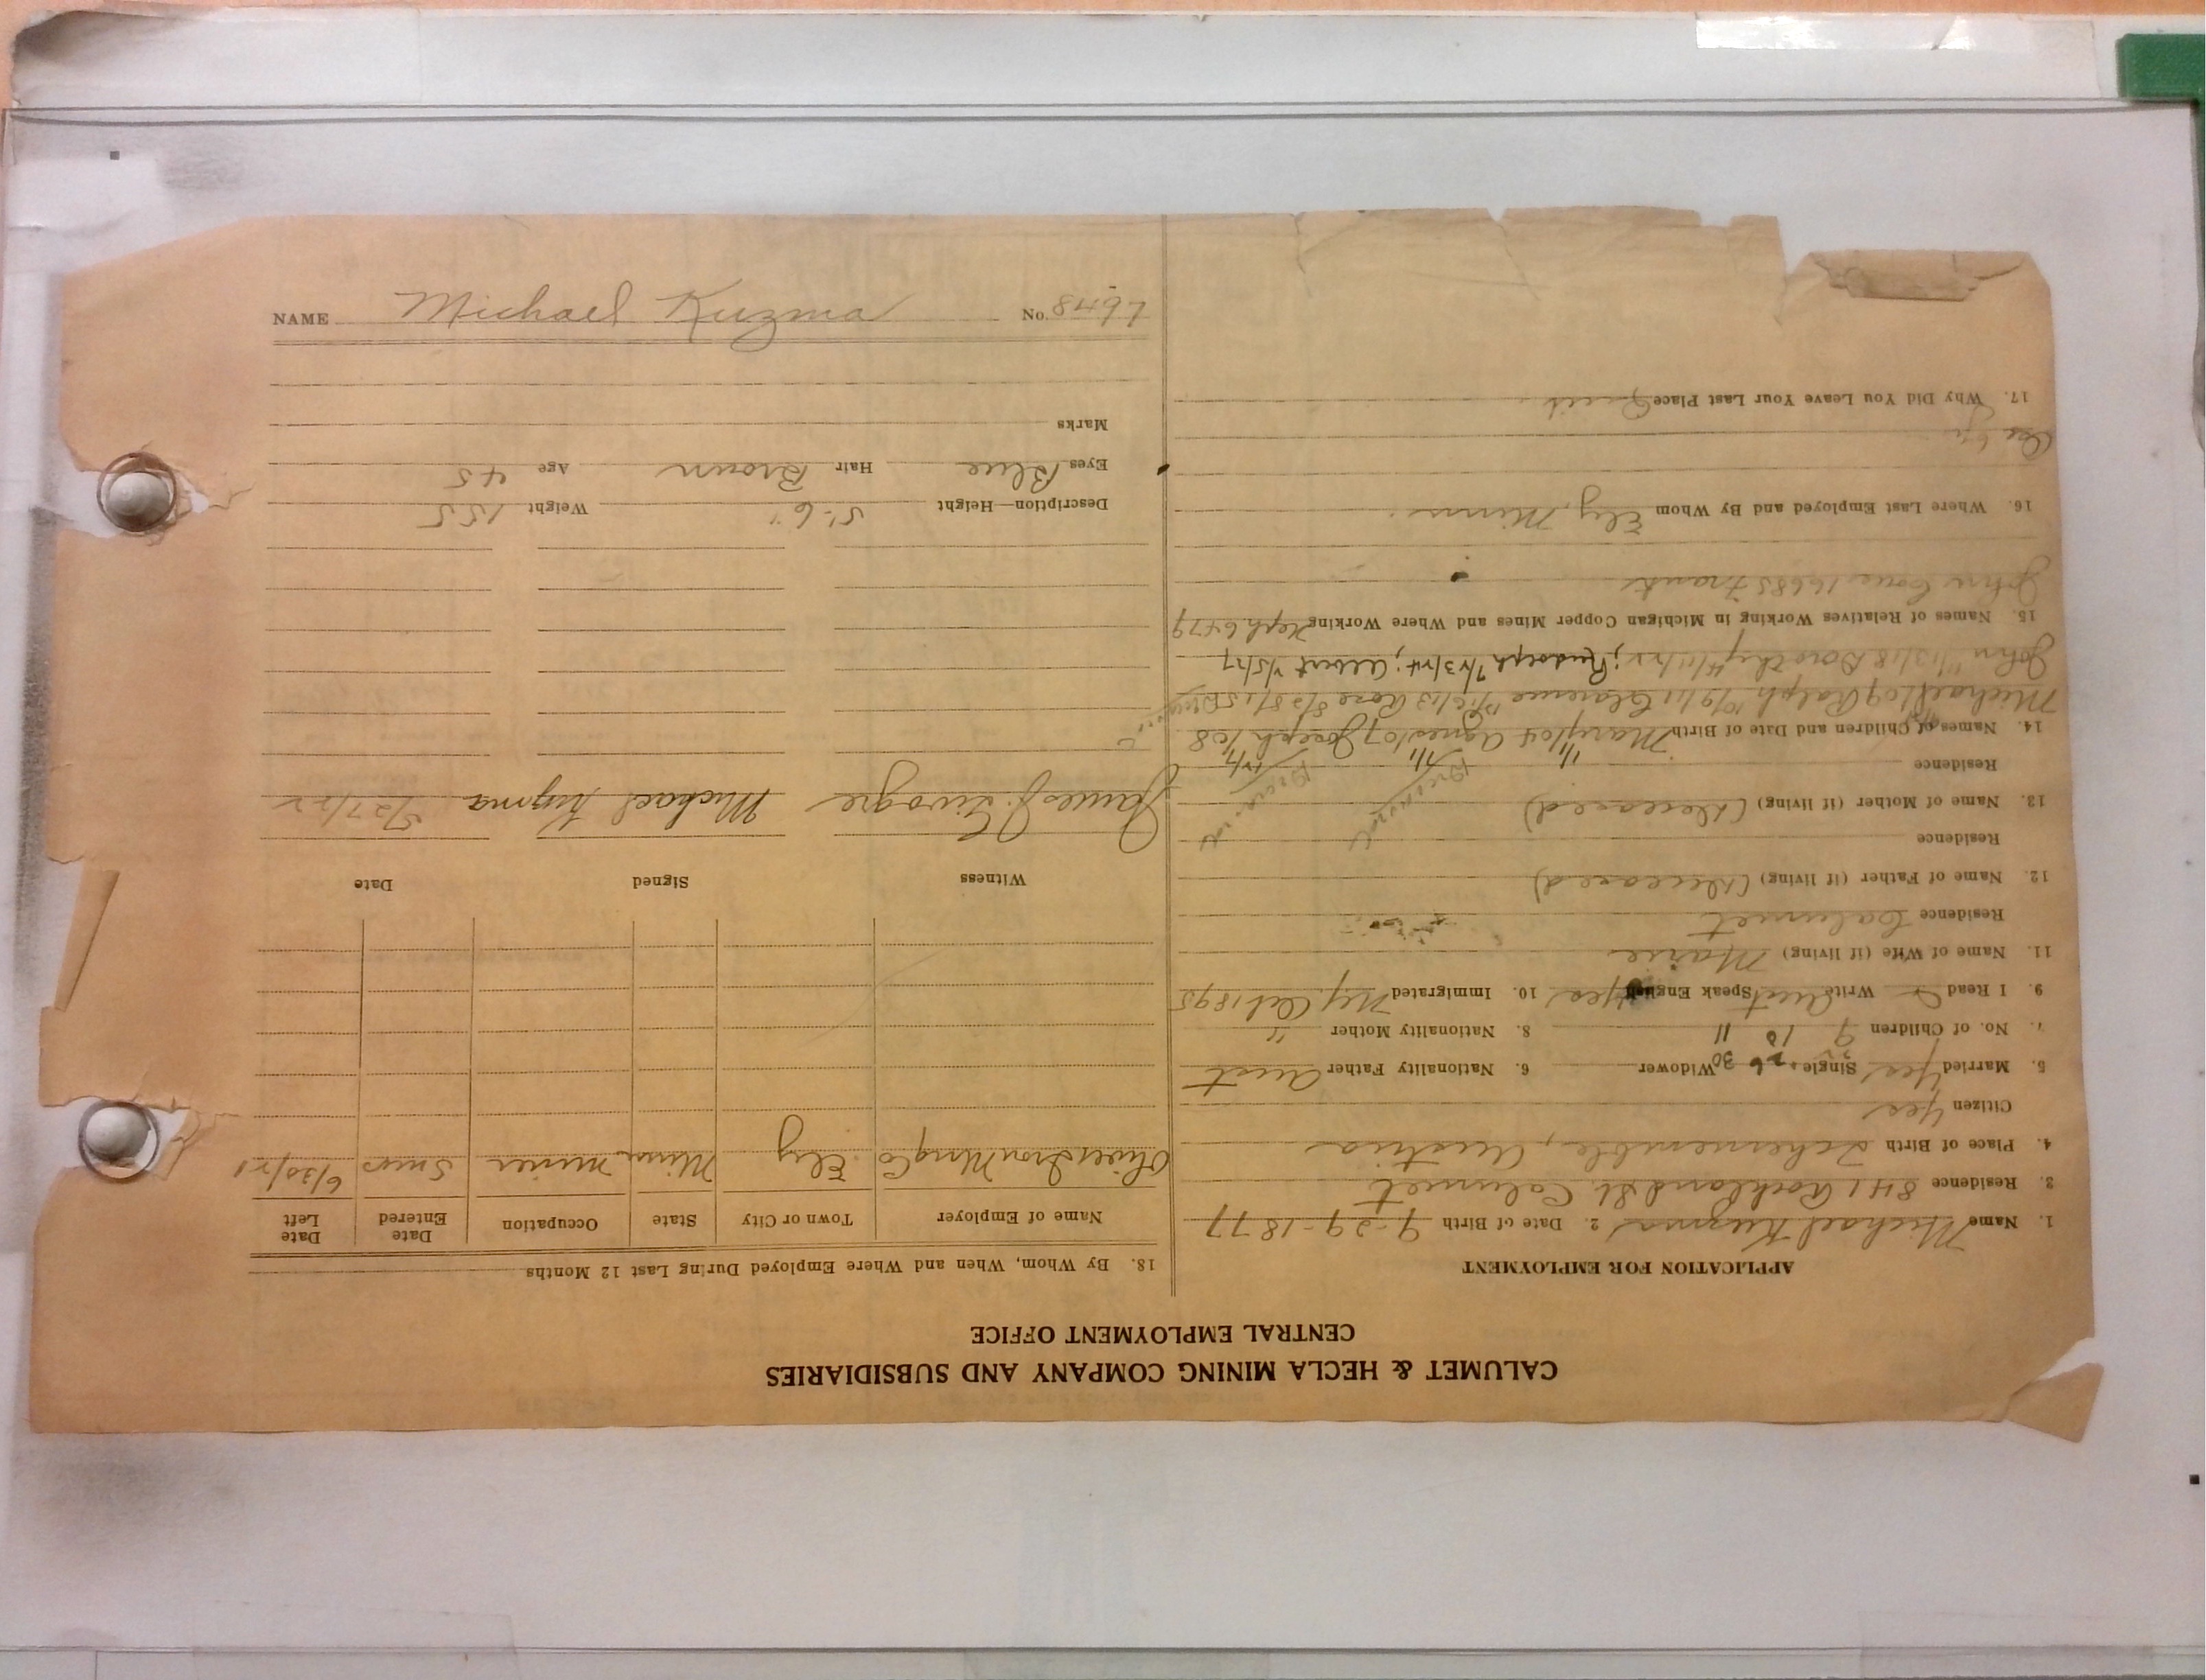 CALUMET & HECLA MINING COMPANY AND SUBSIDIARIES
CENTRAL EMPLOYMENT OFFICE
APPLICATION FOR EMPLOYMENT
1. Name Michael Kuzma 2. Date of Birth 9-29-1877
3. Residence 841 Rockland St. Calumet
4. Place of Birth Austria
Citizen Yes
5. Married Yes Single Widower 6. Nationality Father Aust
7. No. of Children 9 10 11 8. Nationality Mother "
9. I Read Write Aust Speak English Yes 10. Immigrated N.Y. Oct 1895
11. Name of Wife (if living) Marie
Residence Calumet
12. Name of Father (if living) (Deceased)
Residence
13. Name of Mother (if living) (Deceased)
Residence
14. Names of Children and Date of Birth Mary Agnes Joseph
Michael Ralph 10/9/11 Clarence Rose 8/28/15
John 11/13/18 Dorothy Rudolph 7/23/24; Albert
15. Names of Relatives Working in Michigan Copper Mines and Where Working
John 16685
16. Where Last Employed and By Whom Ely, Minn.
17. Why Did You Leave Your Last Place Quit
18. By Whom, When and Where Employed During Last 12 Months
Name of Employer Town or City State Occupation Date Entered Date Left
Oliver Iron Mng Co Ely Minn Miner 5 mos 6/30/21
Witness Signed Date
Michael Kuzma 5/27/22
Description—Height 5'-6" Weight 155
Eyes Blue Hair Brown Age 45
Marks
NAME Michael Kuzma No.